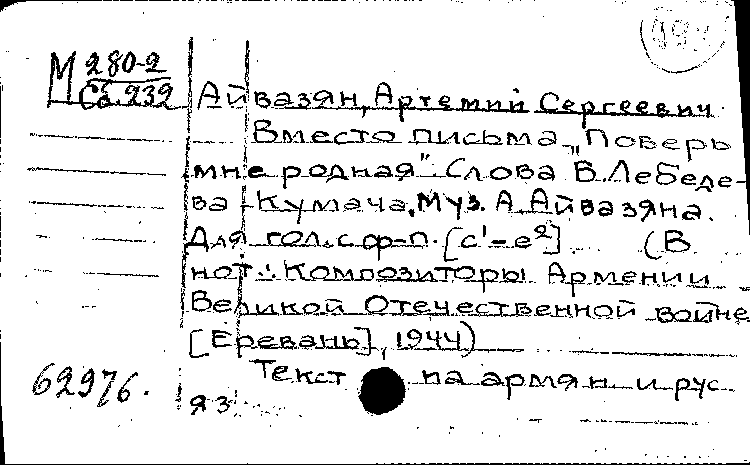 М 280-2
Сб.232
Айвазян, Артемий Сергеевич
Вместо письма „Поверь
мне родная". Слова В. Лебеде-
ва-Кумача. Муз. А. Айвазяна.
Для гол. с ф-п. [c¹-e²] (В
нот.: Композиторы Армении
Великой Отечественной войне
[Ереванъ], 1944)
Текст на армян. и рус.
яз.
62976.